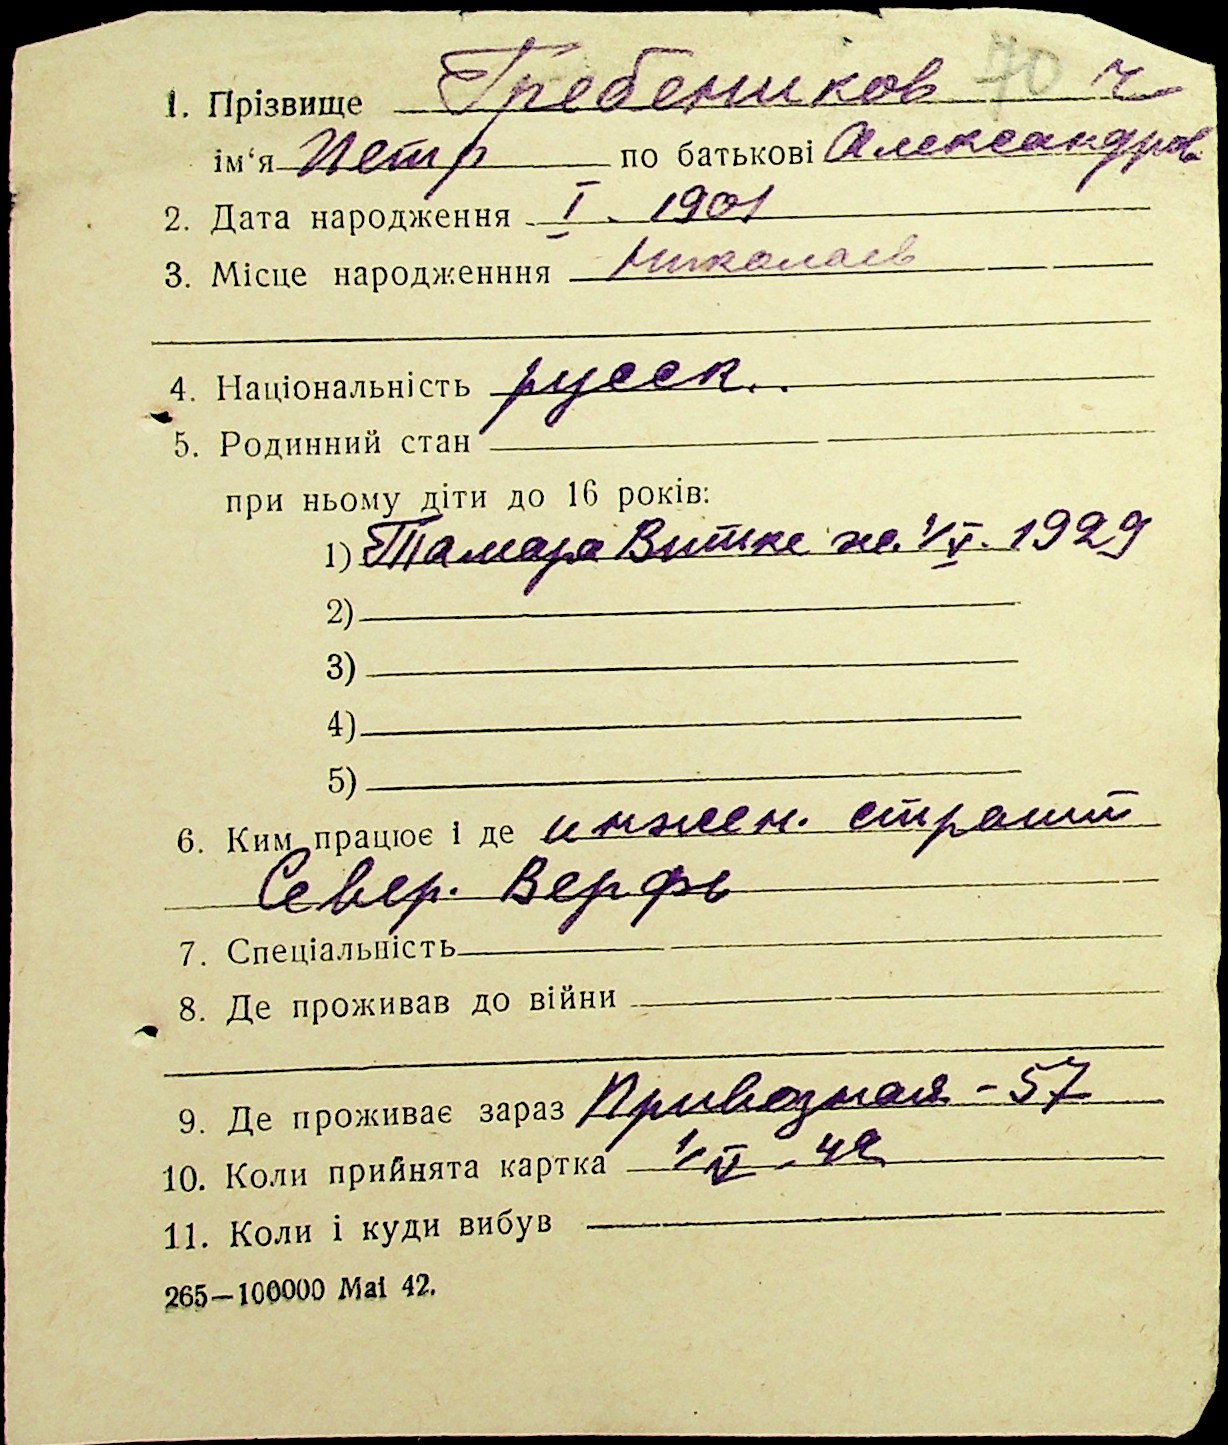 1. Прізвище Гребеников 70 ч
ім'я Петр по батькові Александров
2. Дата народження I. 1901
3. Місце народженння Николаев
4. Національність русск..
5. Родинний стан
при ньому діти до 16 років:
1) Тамара Витке же. 1/V. 1929
2)
3)
4)
5)
6. Ким працює і де инжен.
Север. Верфь
7. Спеціальність
8. Де проживав до війни
9. Де проживає зараз Привозная - 57
10. Коли прийнята картка 42
11. Коли і куди вибув
265—100000 Mai 42.